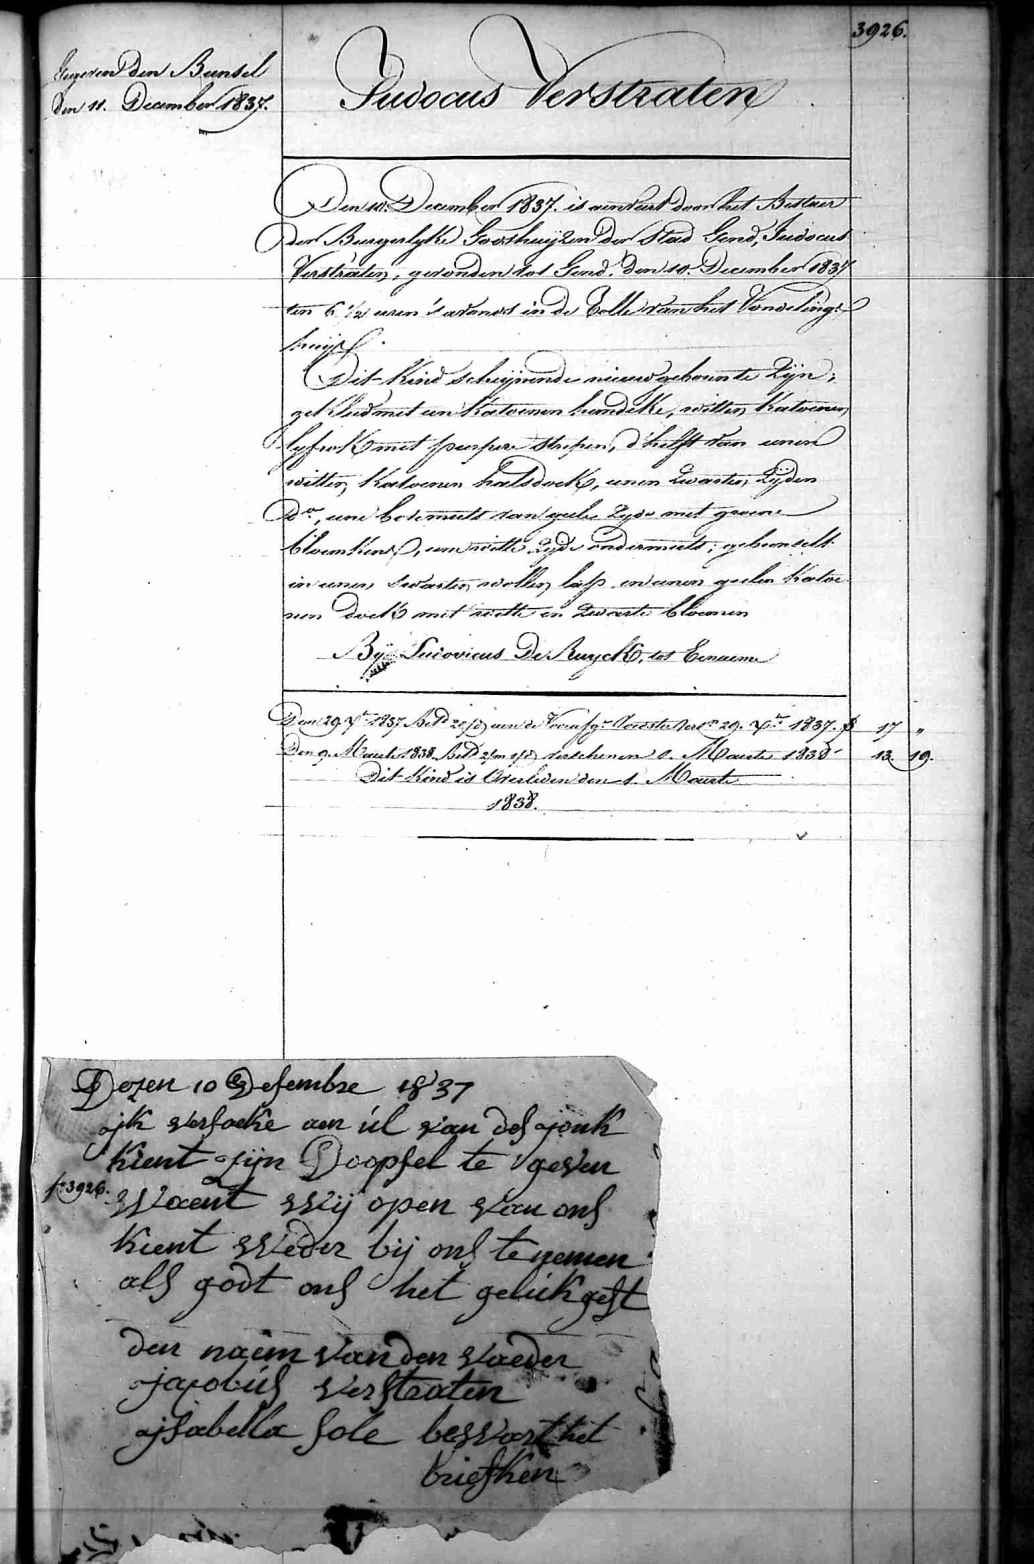 3926.
Gegeven den Bunsel
den 11. December 1837.
Judocus Verstraten
Den 10. December 1837. is aenveird door het Bestuer
der Burgerlyke Godshuijzen der Stad Gend, Judocus
Verstraten, gevonden tot Gend. den 10. December 1837
ten 6 1/2 uren 's avonds in de Rolle van het Vondelings
huijs.
Dit Kind schijnende nieuwgeboren te Zijn,
gekleed met een Katoenen hemdeke, witten Katoenen
lyfrok met purpere strepen, d'helft van eenen
witten Katoenen halsdoek, eenen Zwarten Zyden
do, eene bovemuts van geele Zyde met groene
bloemkens, eene witte Zyde ondermuts; gebonselt
in eenen swarten wollen lap en eenen geelen Katoe
nen doek met witte en Zwarte bloemen
By Ludovicus De Ruyck, tot Eename
Den 29 Xbr 1837 Betd aen de 29. Xbr 1837. 17 "
Den 9. Maerte 1838. Betd verschenen 1. Maerte 1838 13. 19.
Dit Kind is Overleden den 1. Maerte
1838.
Dezen 10 Desembre 1837
ijk versoeke aen úl van des jonk
Kient zijn Doopsel te geven
fo 3926.
Waent wij open van ons
Kient weder bij ons te nemen
als godt ons het gelúk geft
den naem van den vaeder
jacobús verstraten
ijsabella sole bewart het
briefken